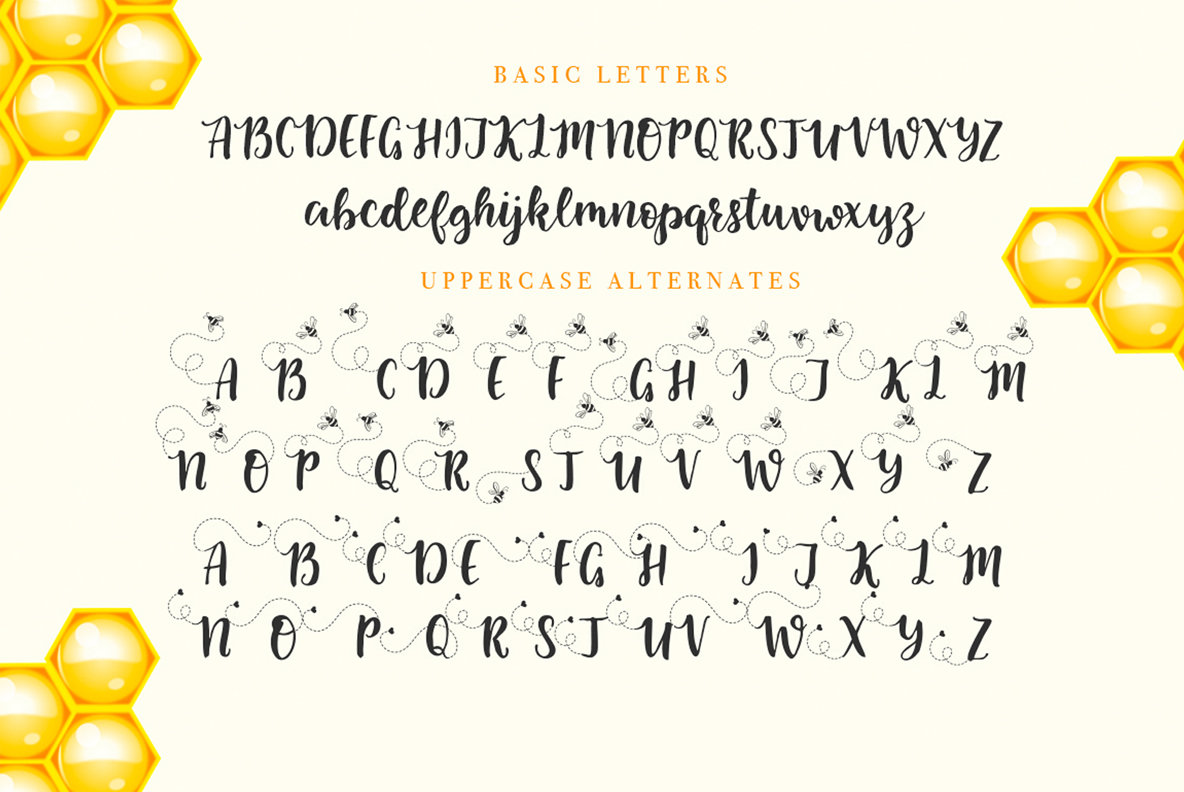 BASIC LETTERS
ABCDEFGHIJKLMNOPQRSTUVWXYZ
abcdefghijklmnopqrstuvwxyz
UPPERCASE ALTERNATES
A B C D E F G H I J K L M
N O P Q R S T U V W X Y Z
A B C D E F G H I J K L M
N O P Q R S T U V W X Y Z